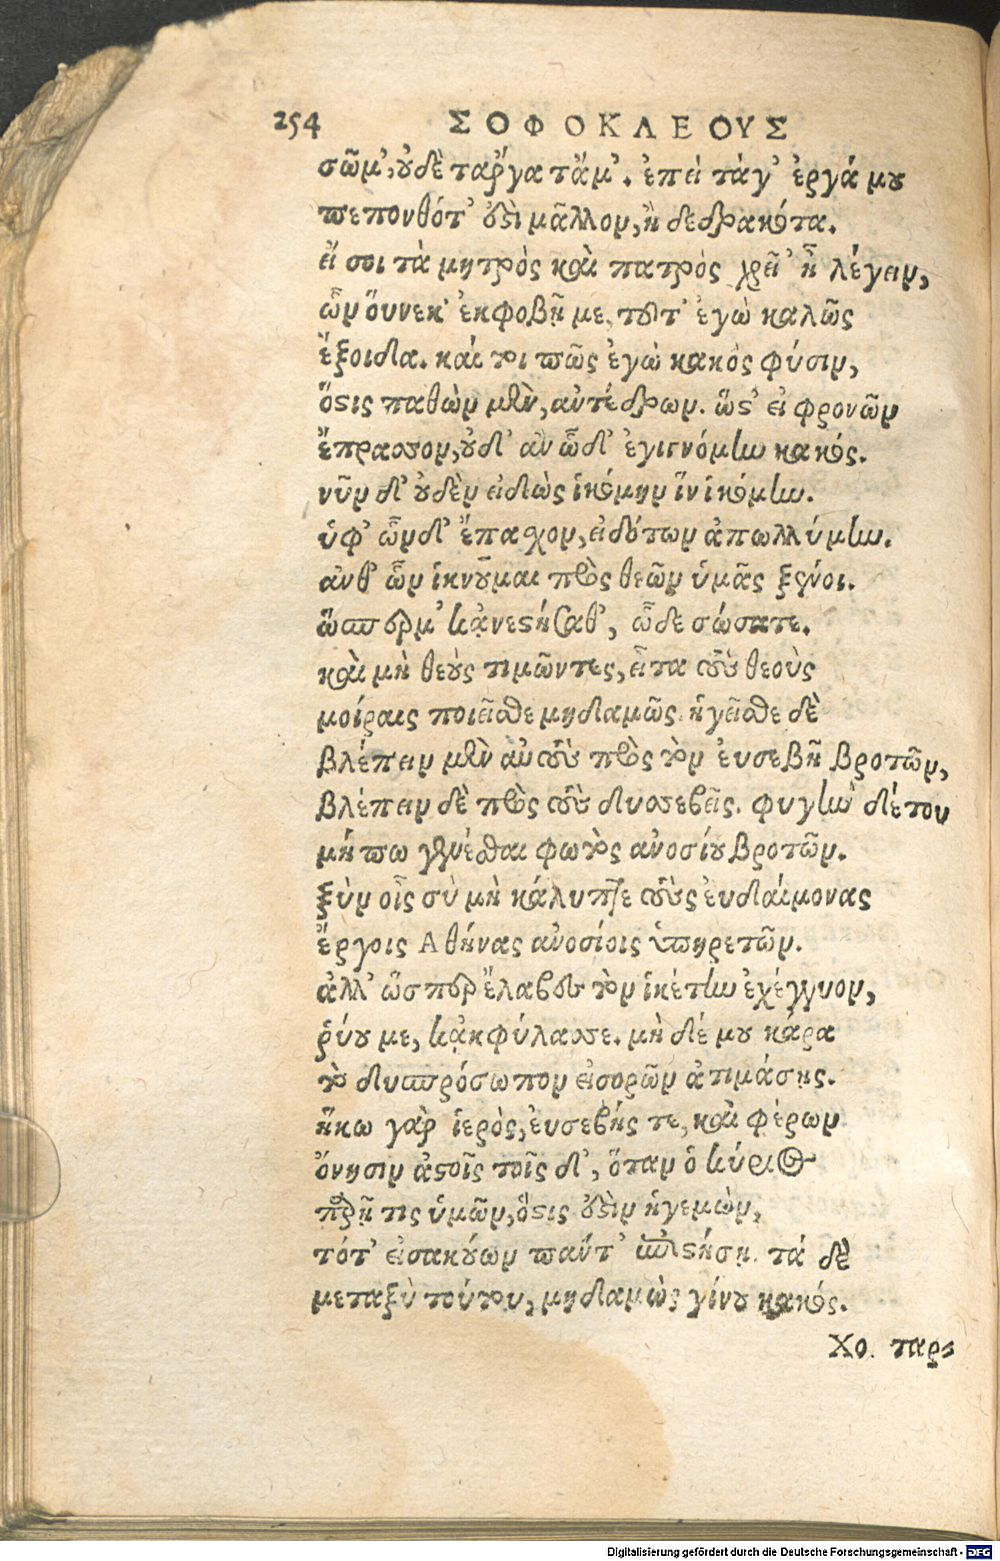 254 ΣΟΦΟΚΛΕΟΥΣ
σῶμ', οὐδὲ τἄργα τἄμ'. ἐπεὶ τάγ' ἐργά μου
πεπονθότ' ὀςὶ μᾶλλον, ἢ δεδρακότα.
εἴ σοι τὰ μητρὸς καὶ πατρὸς χρεῖ' ἦ λέγειν,
ὧν οὕνεκ' ἐκφοβῇ με, τοῦτ' ἐγὼ καλῶς
ἔξοιδα. καί τοι πῶς ἐγὼ κακὸς φύσιν,
ὅστις παθὼν μὲν, ἀντέδρων. ὥστ' εἰ φρονῶν
ἔπρασσον, οὐδ' ἂν ὧδ' ἐγιγνόμην κακός.
νῦν δ' οὐδὲν εἰδὼς ἱκόμην ἵν ἱκόμην.
ὑφ' ὧν δ' ἔπασχον, εἰδότων ἀπωλλύμην.
ἀνθ' ὧν ἱκνοῦμαι πρὸς θεῶν ὑμᾶς ξένοι.
ὥσπερ μ' κἀνεστήσαθ', ὧδε σώσατε.
καὶ μὴ θεοὺς τιμῶντες, εἶτα τοὺς θεοὺς
μοίραις ποιεῖσθε μηδαμῶς. ἡγεῖσθε δὲ
βλέπειν μὲν αὐτοὺς πρὸς τὸν ἐυσεβῆ βροτῶν,
βλέπειν δὲ πρὸς τοὺς δυσσεβεῖς. φυγὴν δέ του
μήπω γενέσθαι φωτὸς ἀνοσίου βροτῶν.
ξὺν οἷς σὺ μὴ κάλυπτε τοὺς ἐυδαίμονας
ἔργοις Αθήνας ἀνοσίοις ὑπηρετῶν.
ἀλλ' ὥσπερ ἔλαβες τὸν ἱκέτην ἐχέγγυον,
ῥύου με, κἀκφύλασσε. μὴ δέ μου κάρα
τὸ δυσπρόσωπον εἰσορῶν ἀτιμάσῃς.
ἥκω γὰρ ἱερὸς, ἐυσεβής τε, καὶ φέρων
ὄνησιν ἀστοῖς τοῖς δ', ὅταν ὁ κύριος
παρῇ τις ὑμῶν, ὅστις ὀςὶν ἡγεμὼν,
τότ' εἰσακούων πάντ' ἐπιστήσῃ. τά δὲ
μεταξὺ τούτου, μηδαμὼς γίνου κακός.
Χο. παρε